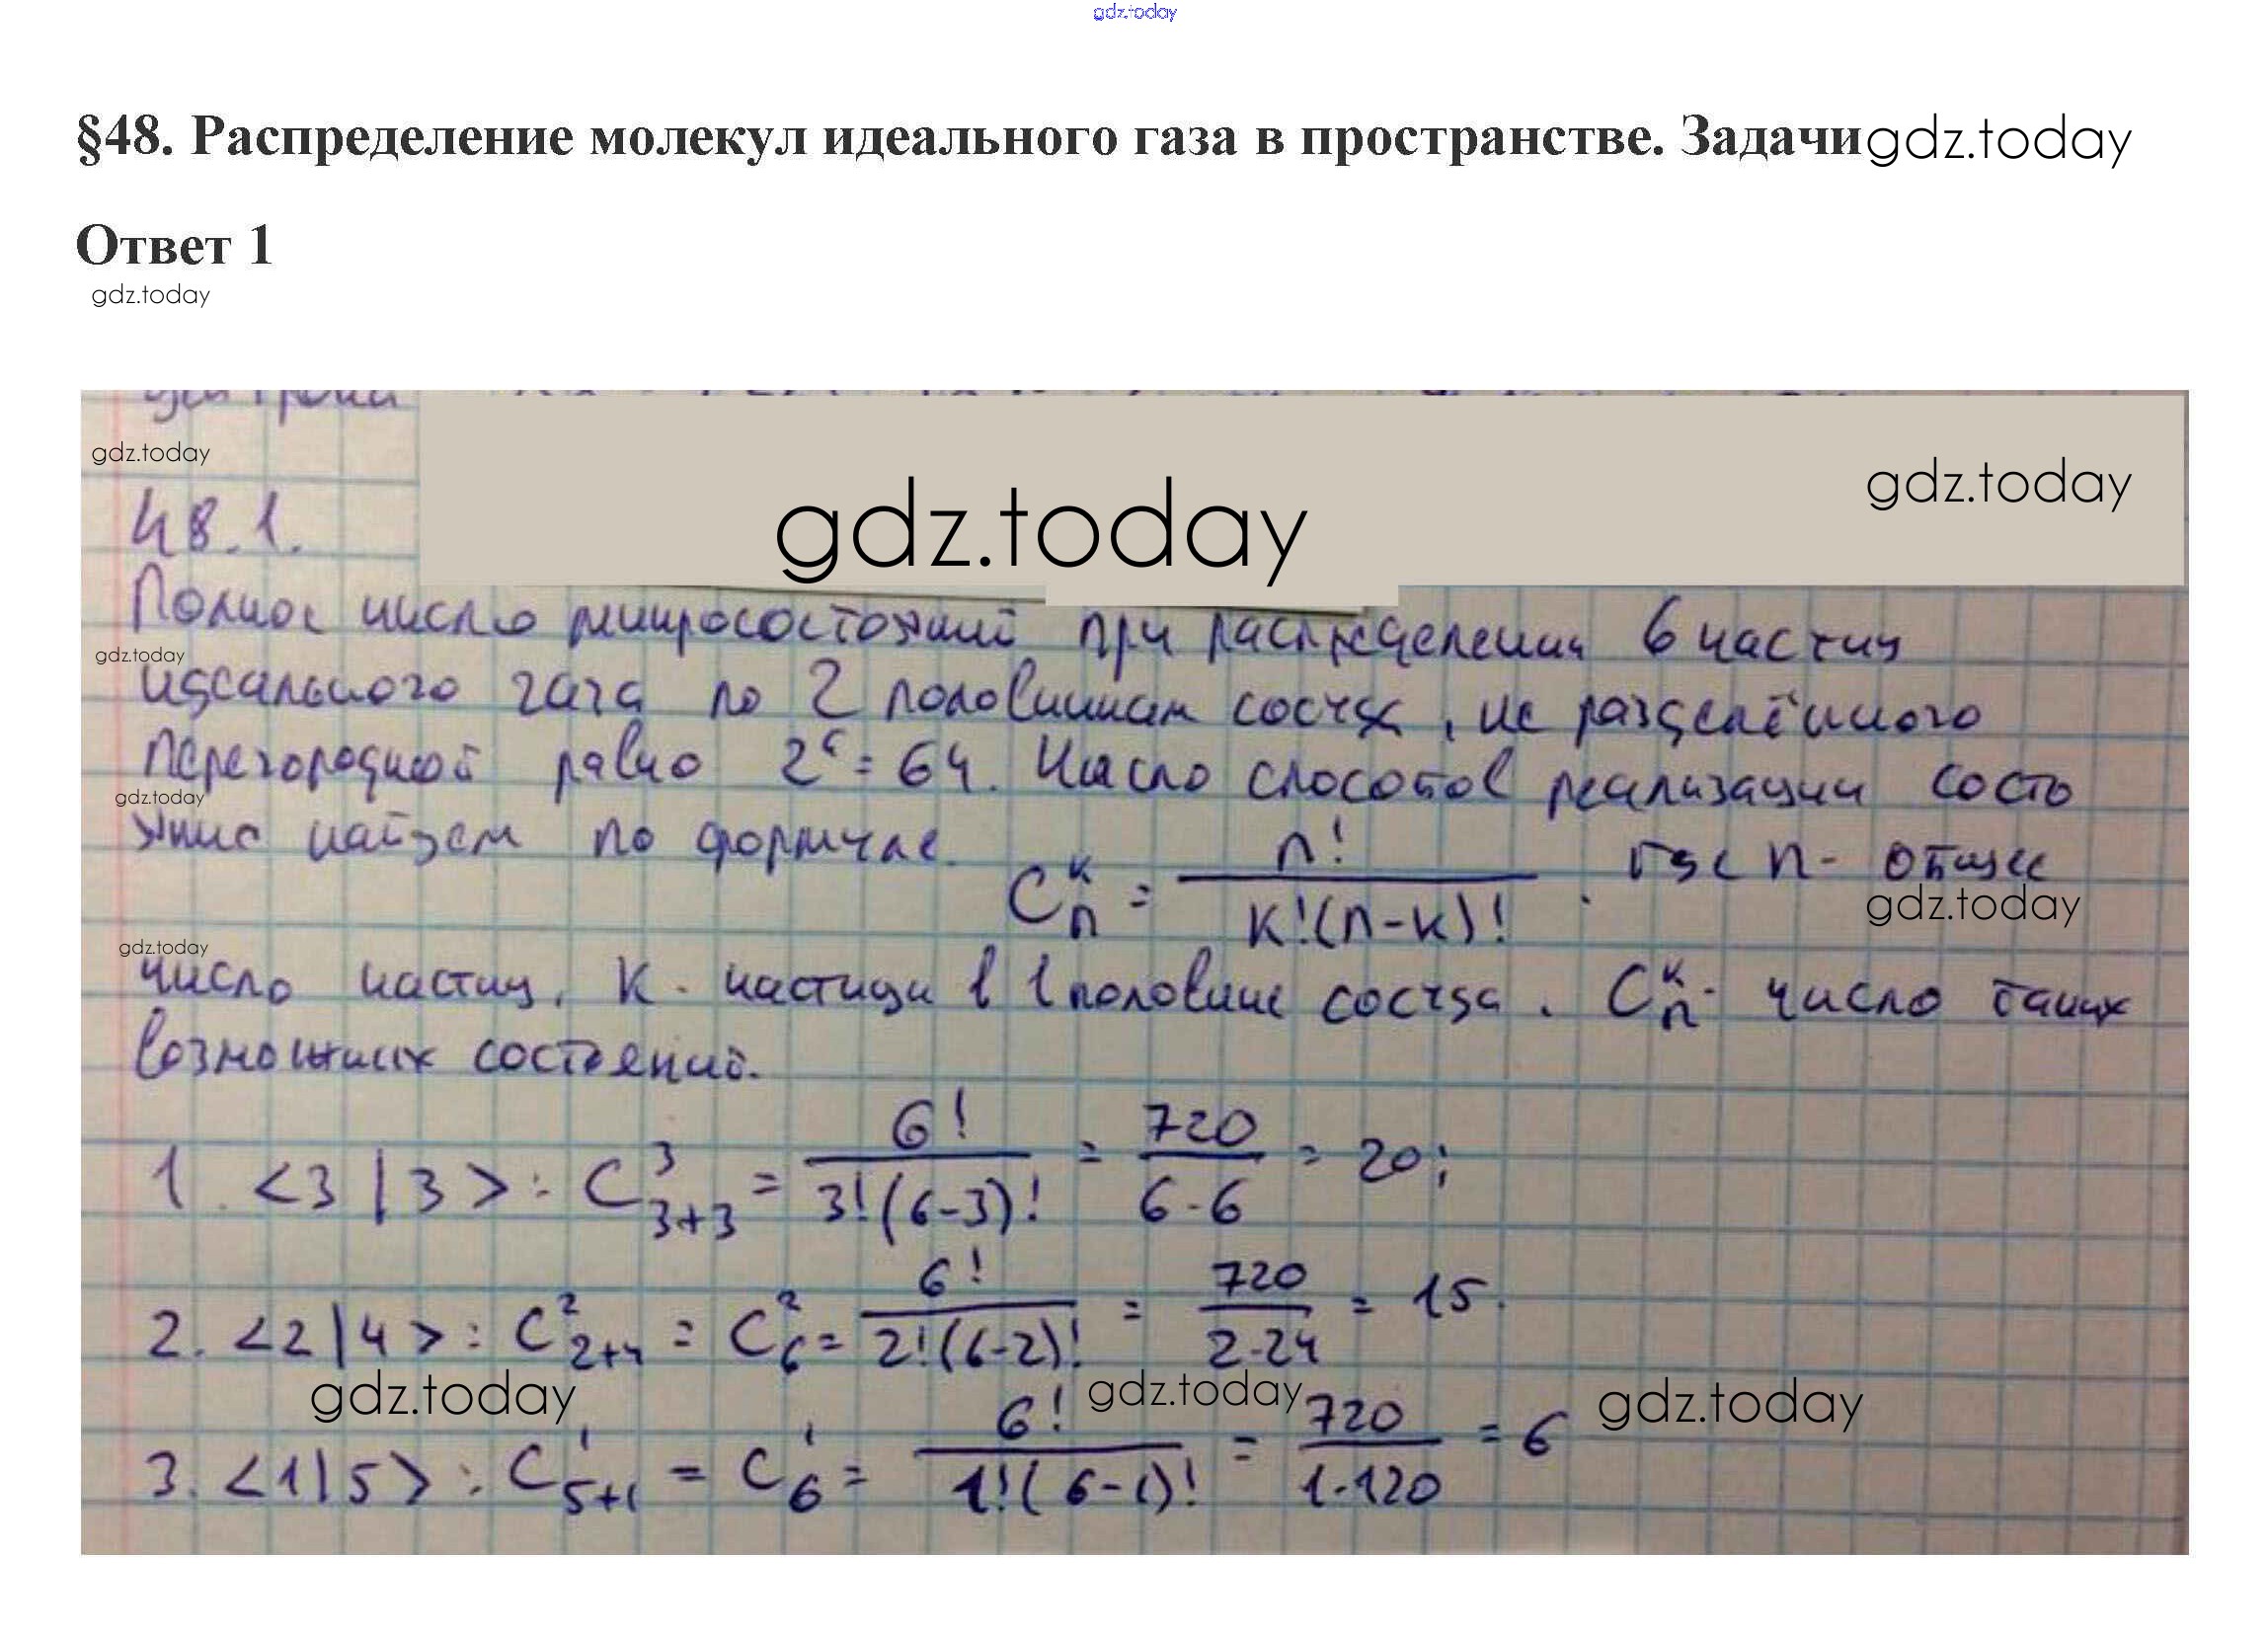 gdz.today
§48. Распределение молекул идеального газа в пространстве. Задачи gdz.today
Ответ 1
gdz.today
gdz.today
gdz.today
gdz.today
48.1.
Полное число микросостояний при распределении 6 частиц
gdz.today
идеального газа по 2 половинам сосуда, не разделённого
перегородкой равно 2⁶ = 64. Число способов реализации состо
gdz.today
яние найдем по формуле.
Cₙᵏ = n! / k!(n-k)! . где n - общее
gdz.today
gdz.today
число частиц, k - частицы в 1 половине сосуда. Cₙᵏ - число таких
возможных состояний.
1. <3|3> : C³₃₊₃ = 6! / 3!(6-3)! = 720 / 6·6 = 20;
2. <2|4> : C²₂₊₄ = C²₆ = 6! / 2!(6-2)! = 720 / 2·24 = 15.
gdz.today gdz.today gdz.today
3. <1|5> : C¹₅₊₁ = C¹₆ = 6! / 1!(6-1)! = 720 / 1·120 = 6